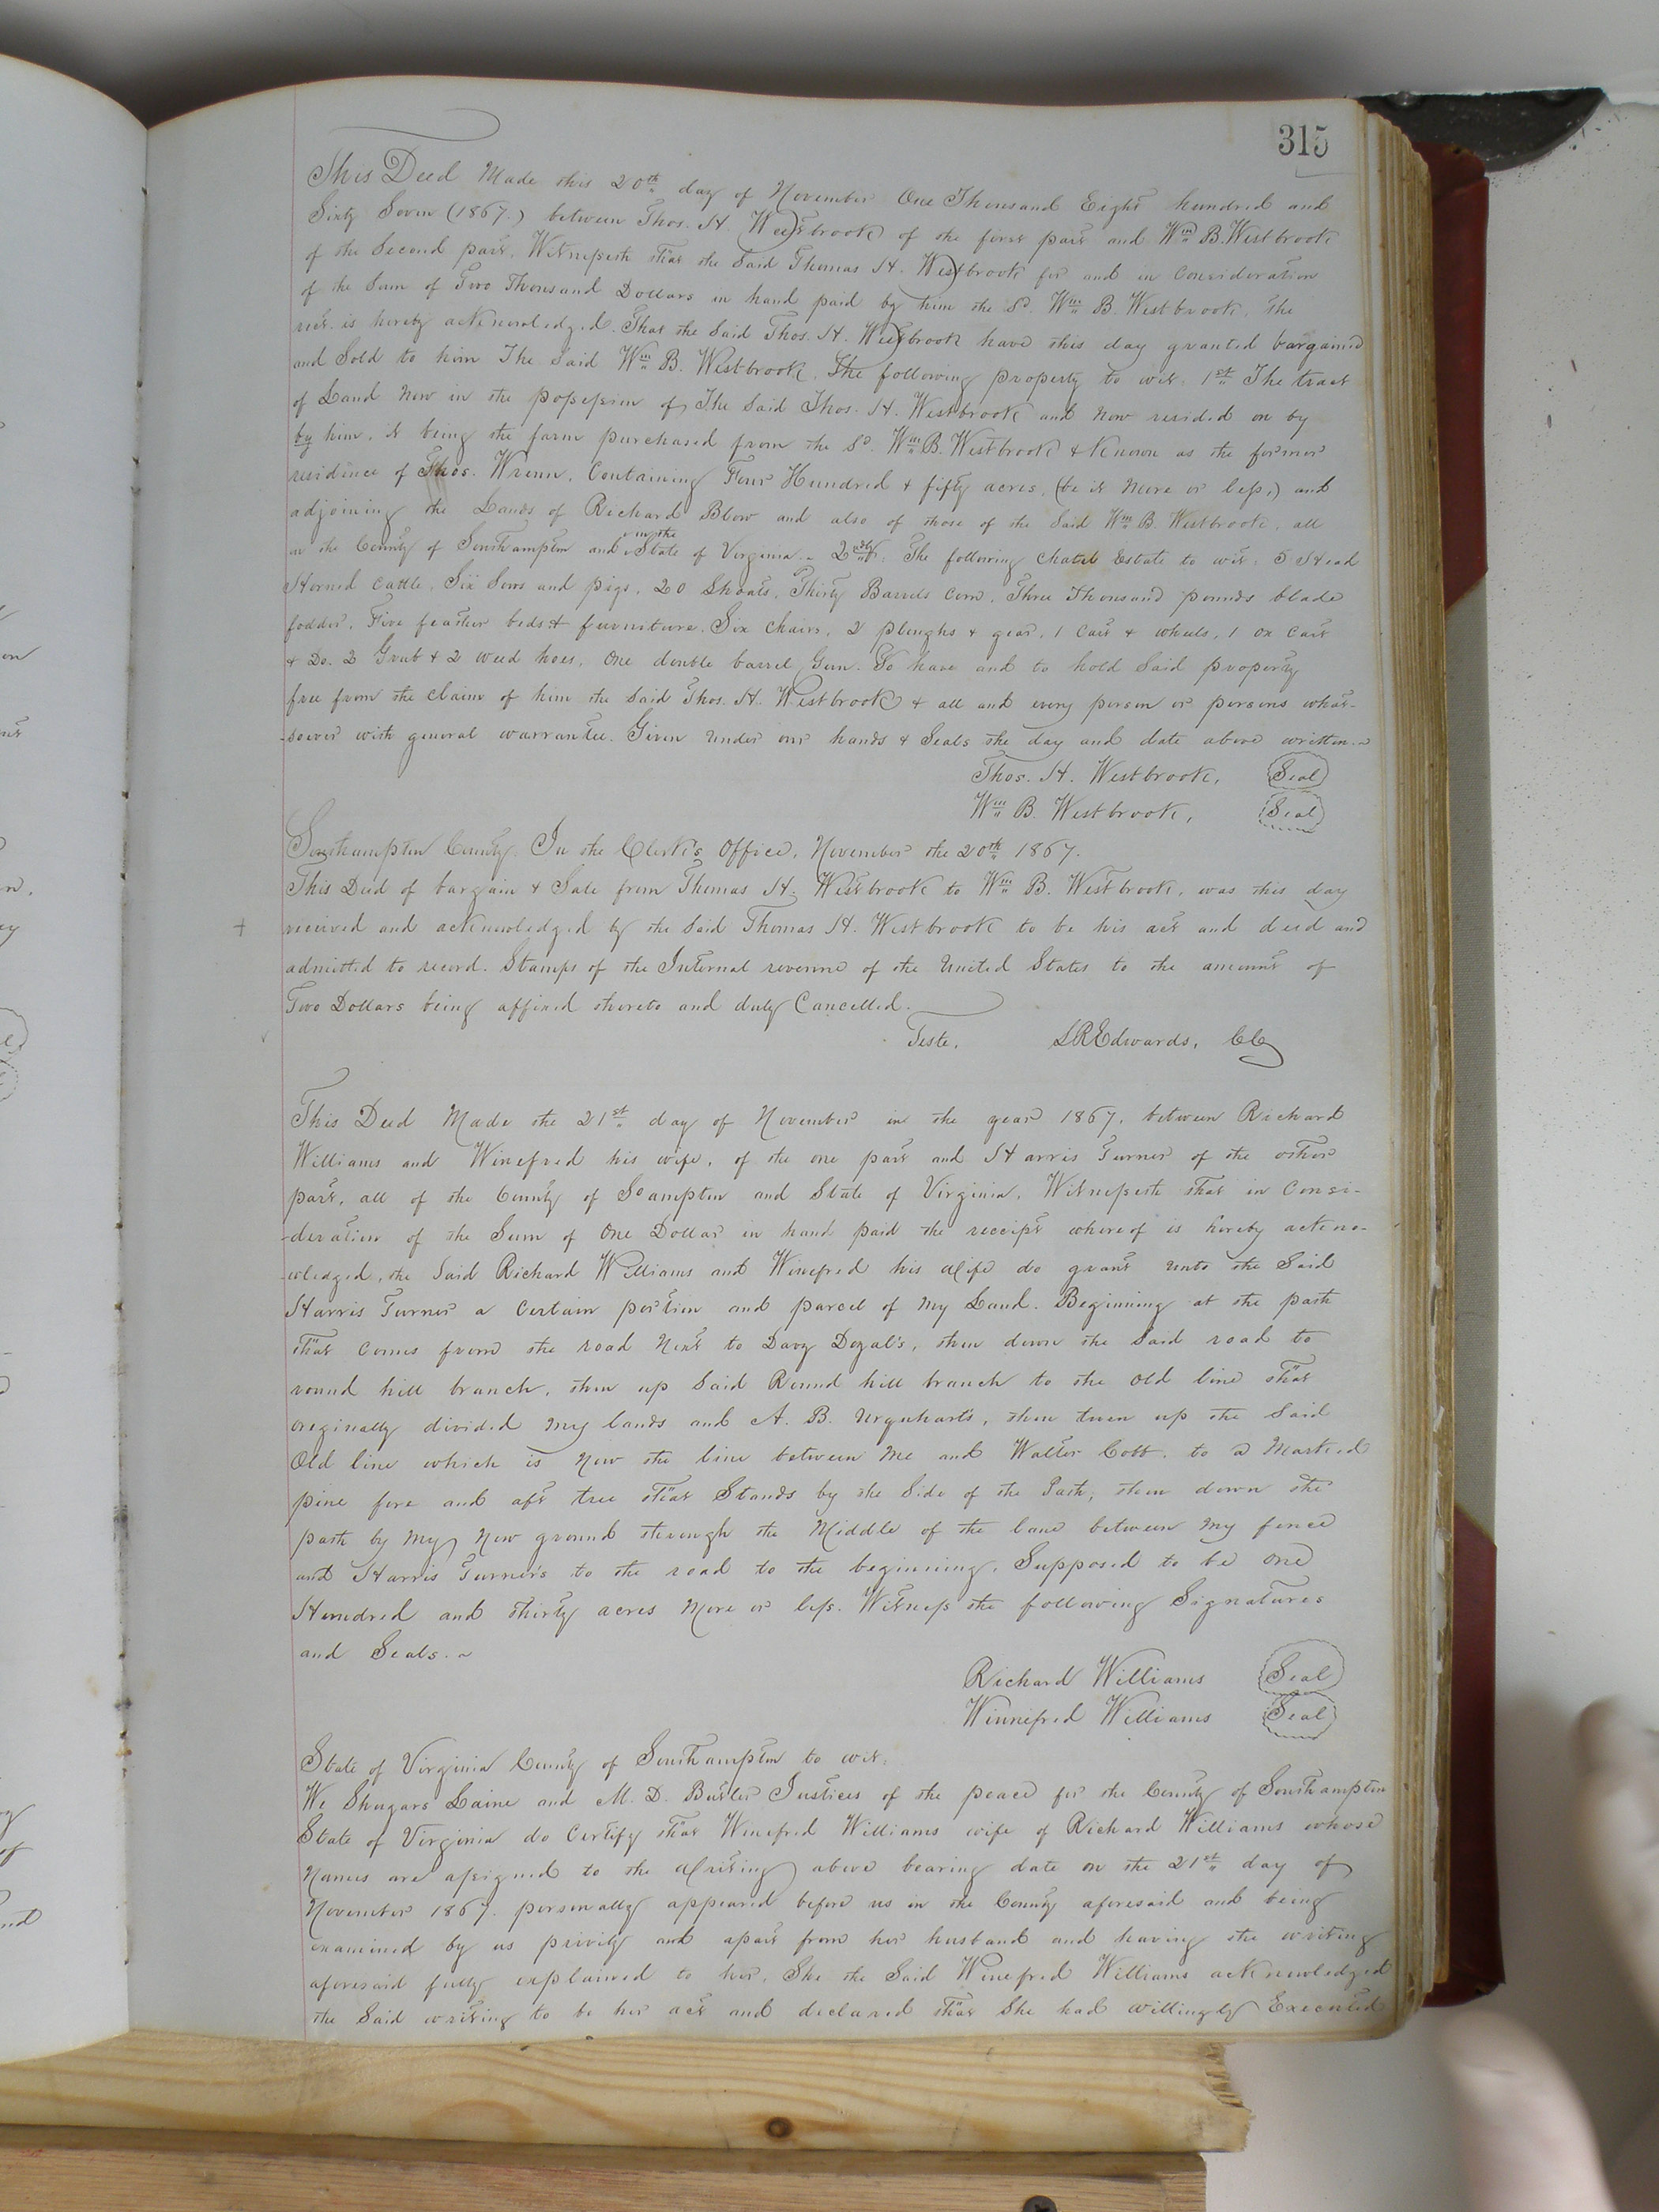 315
This Deed Made this 20th day of November One Thousand Eight hundred and
Sixty Seven (1867.) between Thos. H. Westbrook of the first part and Wm B. Westbrook
of the Second part, Witnesseth that the Said Thomas H. Westbrook for and in Consideration
of the Sum of Two Thousand Dollars in hand paid by him the Sd. Wm B. Westbrook, the
rect. is hereby acknowledged. That the Said Thos. H. Westbrook have this day granted bargained
and Sold to him The Said Wm B. Westbrook, The following property to wit. 1st The tract
of Land Now in the possession of The Said Thos. H. Westbrook and now resided on by
by him, it being the farm purchased from the Sd. Wm B. Westbrook & Known as the former
residence of Thos. Wrenn, Containing Four Hundred & fifty acres, (be it More or less,) and
adjoining the Lands of Richard Blow and also of those of the Said Wm B. Westbrook, all
in the County of Southampton and in the State of Virginia. ~ 2ndly. The following Chatel Estate to wit: 5 Head
Horned Cattle, Six Sows and pigs, 20 Shoats, Thirty Barrels Corn, Three Thousand pounds blade
fodder, Five feather beds & furniture, Six Chairs, 2 ploughs & gear, 1 Cart & wheels, 1 ox Cart
& Do. 2 Grub & 2 weed hoes, One double barrel Gun. To have and to hold Said property
free from the Claim of him the Said Thos. H. Westbrook & all and every person or persons what-
-soever with general warrantee. Given under our hands & Seals the day and date above written. ~
Thos. H. Westbrook, Seal
Wm B. Westbrook, Seal
Southampton County. In the Clerk's Office, November the 20th 1867.
This Deed of bargain & Sale from Thomas H. Westbrook to Wm B. Westbrook, was this day
received and acknowledged by the Said Thomas H. Westbrook to be his act and deed and
admitted to record. Stamps of the Internal revenue of the United States to the amount of
Two Dollars being affixed thereto and duly Cancelled.
Teste, LREdwards, CC
This Deed Made the 21st day of November in the year 1867, between Richard
Williams and Winefred his wife, of the one part and Harris Turner of the other
part, all of the County of Soampton and State of Virginia, Witnesseth that in Consi-
-deration of the Sum of One Dollar in hand paid the receipt whereof is hereby ackno-
-wledged, the Said Richard Williams and Winefred his Wife do grant unto the Said
Harris Turner a Certain portion and parcel of My Land. Beginning at the path
that Comes from the road Next to Davy Doyal's, then down the Said road to
round hill branch, then up Said Round hill branch to the Old line that
originally divided my lands and A. B. Urquhart's, then turn up the Said
Old line which is Now the line between Me and Walter Cobb. to a Marked
pine fore and aft tree that Stands by the Side of the Path, then down the
path by My New ground through the Middle of the lane between My fence
and Harris Turner's to the road to the beginning, Supposed to be One
Hundred and thirty acres More or less. Witness the following Signatures
and Seals. ~
Richard Williams Seal
Winnifred Williams Seal
State of Virginia County of Southampton to wit:
We Shugars Laine and M. D. Butler Justices of the peace for the County of Southampton
State of Virginia do Certify that Winefred Williams wife of Richard Williams whose
Names are assigned to the Writing above bearing date on the 21st day of
November 1867. personally appeared before us in the County aforesaid and being
examined by us privily and apart from her husband and having the writing
aforesaid fully explained to her, She the Said Winefred Williams acknowledged
the Said writing to be her act and declared that She had willingly Executed